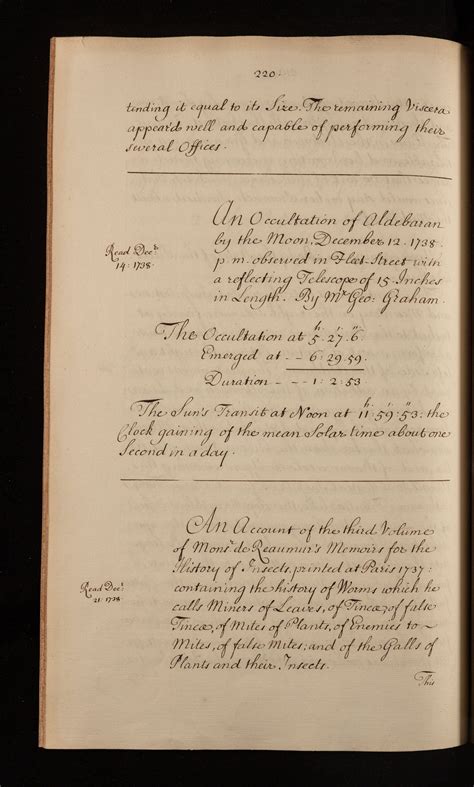 220.
tending it equal to its Size. The remaining Viscera
appear'd well and capable of performing their
several Offices.
An Occultation of Aldebaran
by the Moon, December 12. 1738.
p m. observed in Fleet-Street with
a reflecting Telescope of 15 Inches
in Length. By Mr Geo: Graham.
Read Decr
14: 1738.
The Occultation at 5h. 27'. 6"
Emerged at - - 6: 29. 59.
Duration - - - 1: 2: 53
The Sun's Transit at Noon at 11h: 59': 53": the
Clock gaining of the mean Solar time about one
Second in a day.
An Account of the third Volume
of Monsr de Reaumur's Memoirs for the
History of Insects, printed at Paris 1737:
containing the history of Worms which he
calls Miners of Leaves, of Tineæ, of false
Tineæ, of Mites of Plants, of Enemies to -
Mites, of false Mites; and of the Galls of
Plants and their Insects.
Read Decr
21: 1738.
This